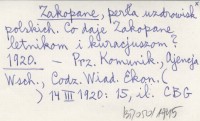 Zakopane, perła uzdrowisk
polskich. Co daje Zakopane
letnikom i kuracjuszom?
1920. – Prz. Komunik., Ajencja
Wsch., Codz. Wiad. Ekon. (
) 14 III 1920: 15, il: CBG